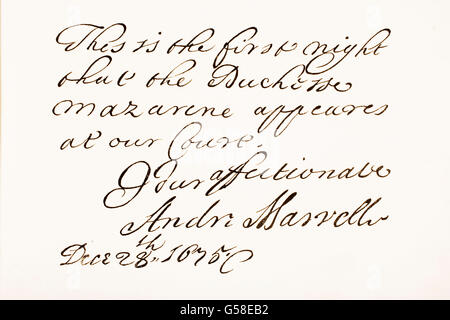 This is the first night
that the Duchesse
mazarine appeares
at our Court.
Your affectionate
Andr: Marvell
Dece 28th. 1675
alamy stock photo
G58EB2